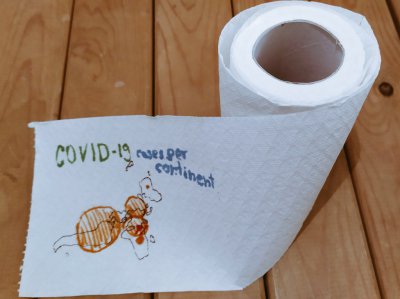 COVID-19 cases per
continent